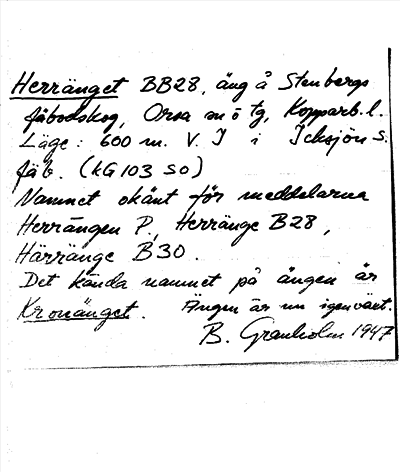 Herränget BB28, äng å Stenbergs
fäbodskog, Orsa sn ö tg, Kopparb. l.
Läge: 600 m. V. I i Icksjön s.
fäb. (KG 103 SO)
Namnet okänt för meddelarna
Herrängen P., Herränge B28,
Härränge B30.
Det kända namnet på ängen är
Kronänget. Ängen är nu igenväxt.
B. Granholm 1947